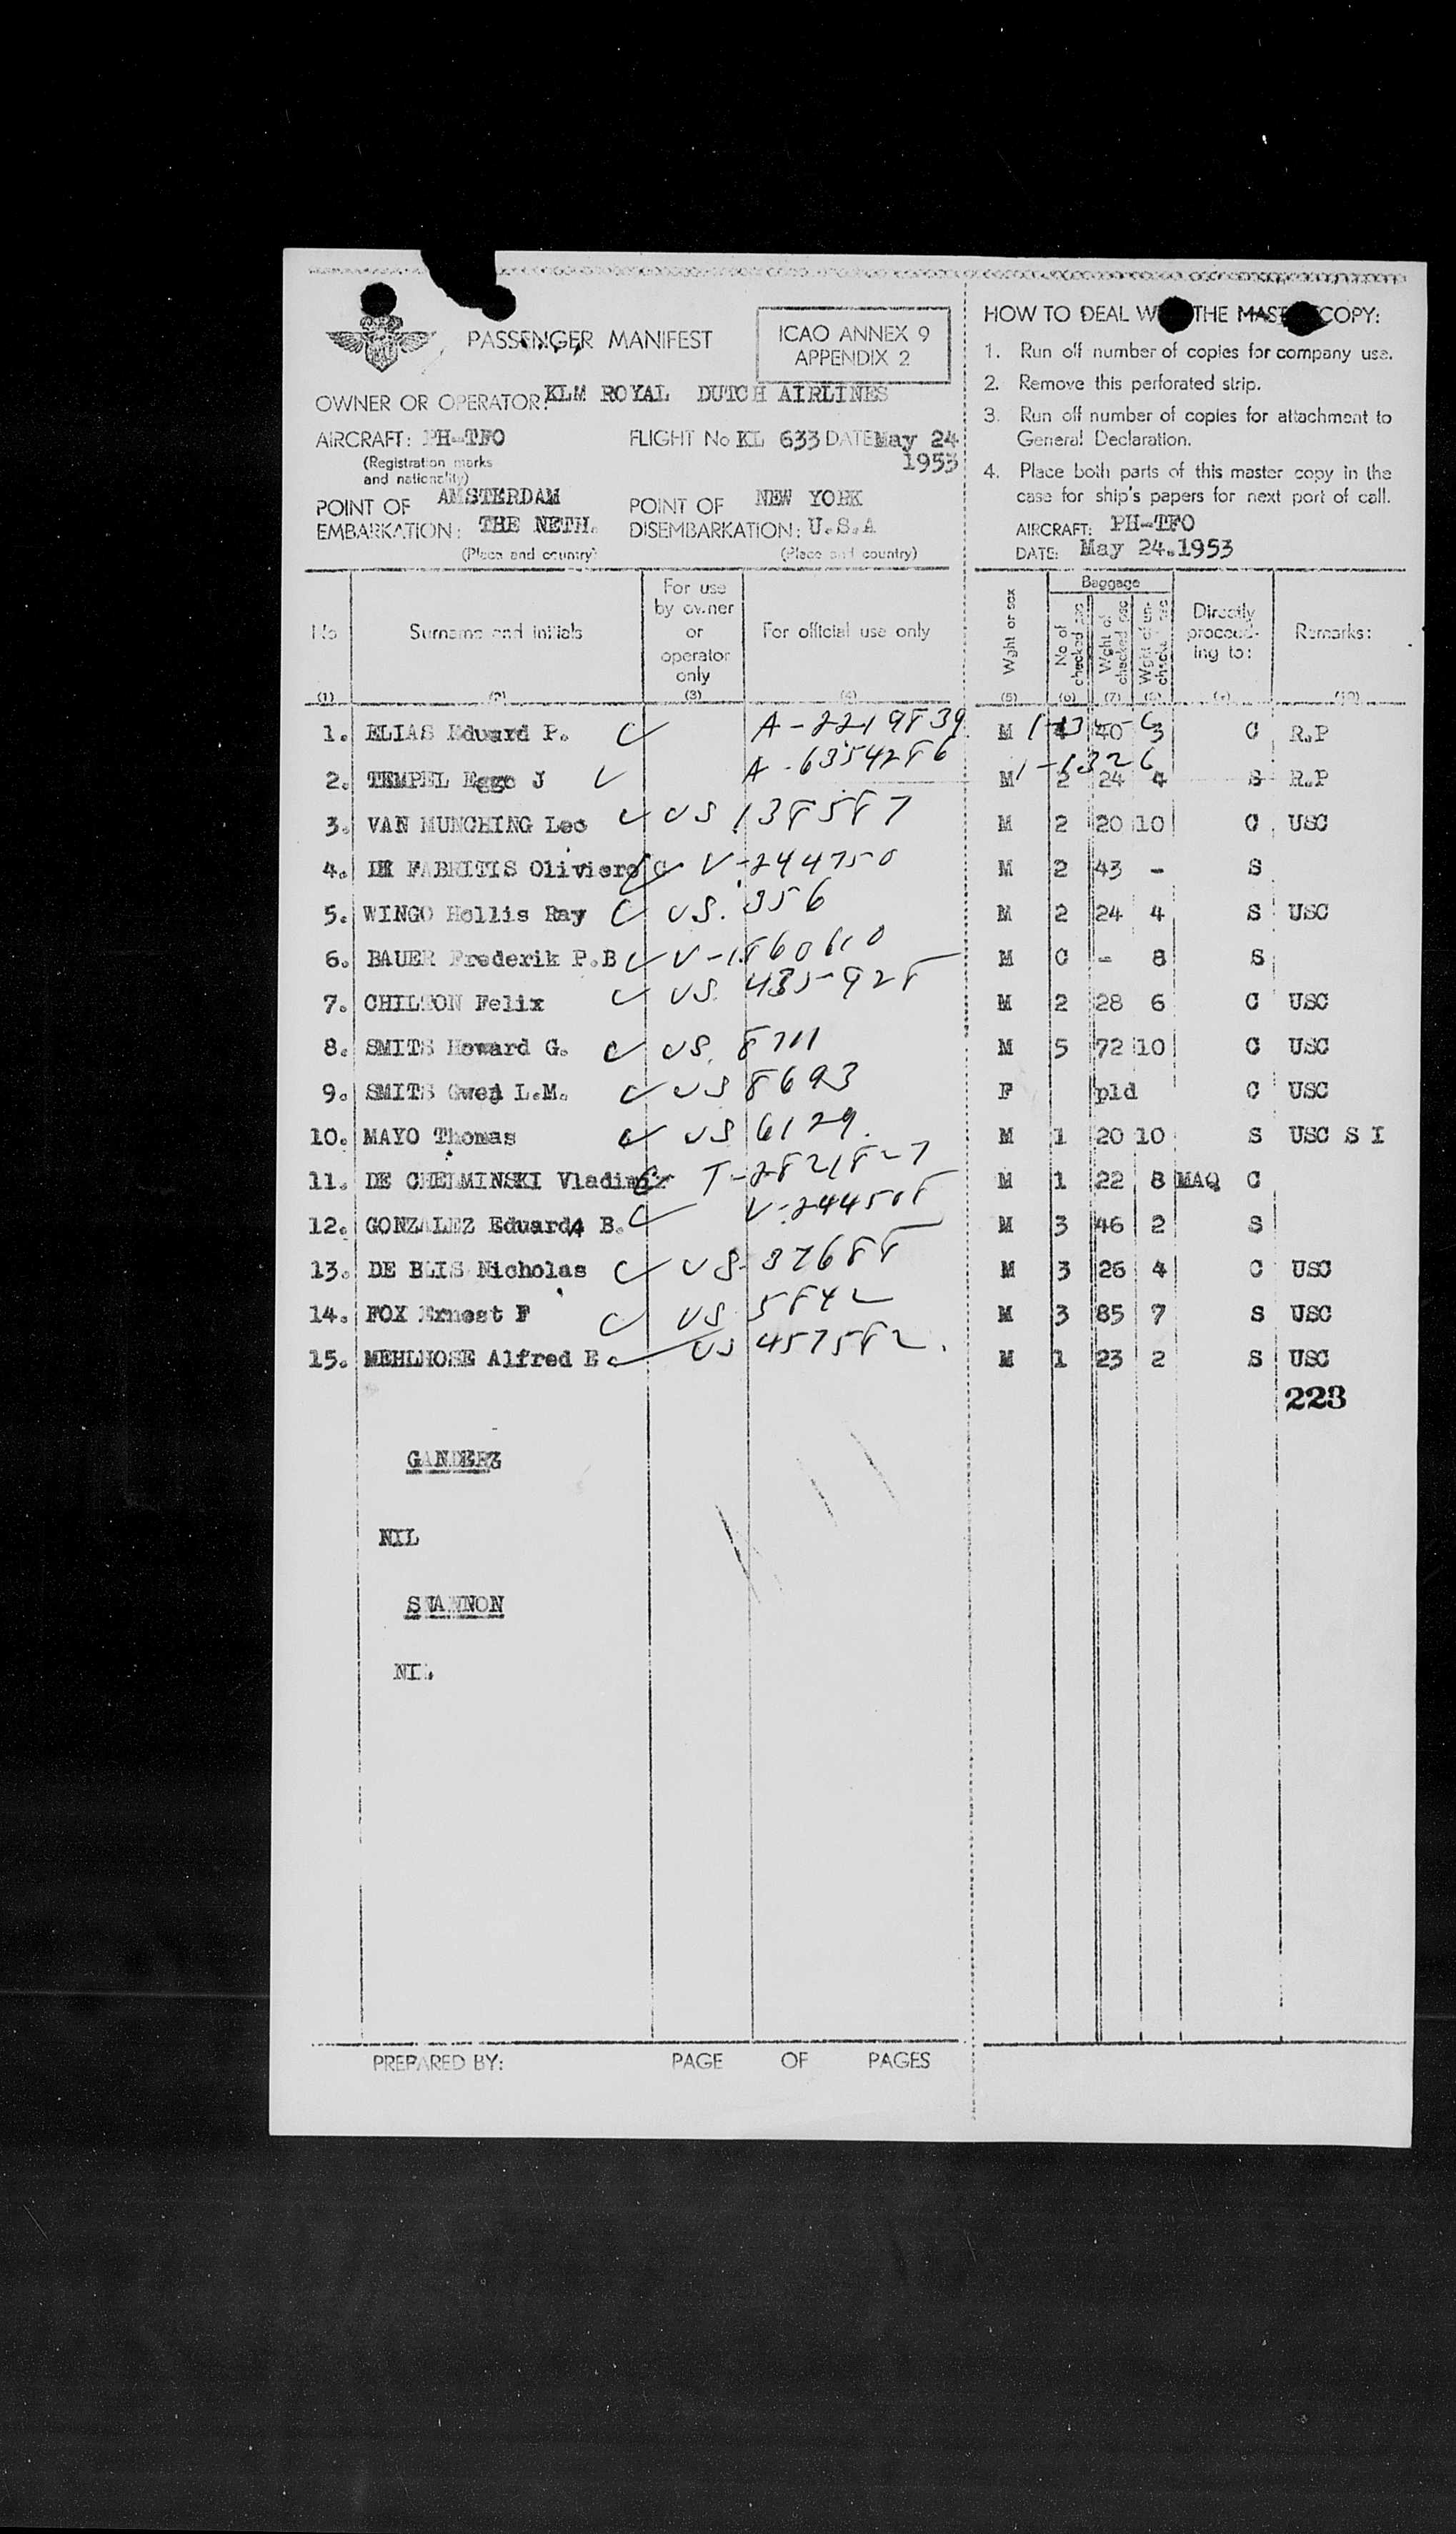 PASSENGER MANIFEST
ICAO ANNEX 9
APPENDIX 2
OWNER OR OPERATOR: KLM ROYAL DUTCH AIRLINES
AIRCRAFT: PH-TFO FLIGHT No KL 633 DATE May 24 1953
(Registration marks
and nationality)
POINT OF EMBARKATION: AMSTERDAM THE NETH. POINT OF DISEMBARKATION: NEW YORK U.S.A
(Place and country) (Place and country)
HOW TO DEAL THE COPY:
1. Run off number of copies for company use.
2. Remove this perforated strip.
3. Run off number of copies for attachment to
General Declaration.
4. Place both parts of this master copy in the
case for ship's papers for next port of call.
AIRCRAFT: PH-TFO
DATE: May 24.1953
No Surname and initials For use by owner or operator only For official use only Wght or sex Baggage No of checked Wght of checked Directly proceed-ing to: Remarks:
(1) (2) (3) (4) (5) (6) (7) (10)
1. ELIAS Eduard P. A-2219839 M 40 3 C R.P
2. TEMPEL Egge J A-6354286 M 1-1326 2 24 4 S R.P
3. VAN MUNCHING Leo US 138587 M 2 20 10 C USC
4. DE FABRITIS Oliviero C V-244750 M 2 43 - S
5. WINGO Hollis Ray US. 356 M 2 24 4 S USC
6. BAUER Frederik P.B V-1860610 M 0 - 8 S
7. CHILTON Felix US. 435928 M 2 28 6 C USC
8. SMITS Howard G. US. 8711 M 5 72 10 C USC
9. SMITS Gwen L.M. US 8693 F pld C USC
10. MAYO Thomas US 6129. M 1 20 10 S USC S I
11. DE CHELMINSKI Vladimir T-2821827 M 1 22 8 MAQ C
12. GONZALEZ Eduard B. V-244508 M 3 46 2 S
13. DE BLIS Nicholas US-37688 M 3 26 4 C USC
14. FOX Ernest F US 5842 M 3 85 7 S USC
15. MEHLHOSE Alfred E US 457582. M 1 23 2 S USC
223
GANDER
NIL
SHANNON
NIL
PREPARED BY: PAGE OF PAGES